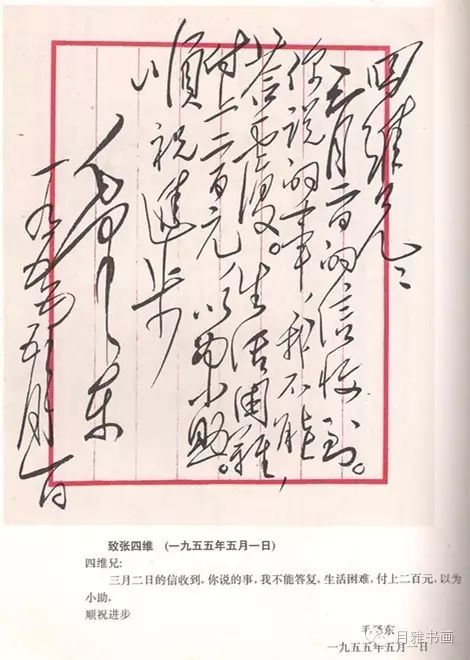 四維兄：
三月二日的信收到。
你说的事，我不能
答复。生活困難，
付上二百元，以为小助。
順祝進步
毛泽东
一九五五年五月一日
致张四维 (一九五五年五月一日)
四维兄:
三月二日的信收到，你说的事，我不能答复。生活困难，付上二百元，以为
小助。
顺祝进步
毛泽东
一九五五年五月一日
月雅书画